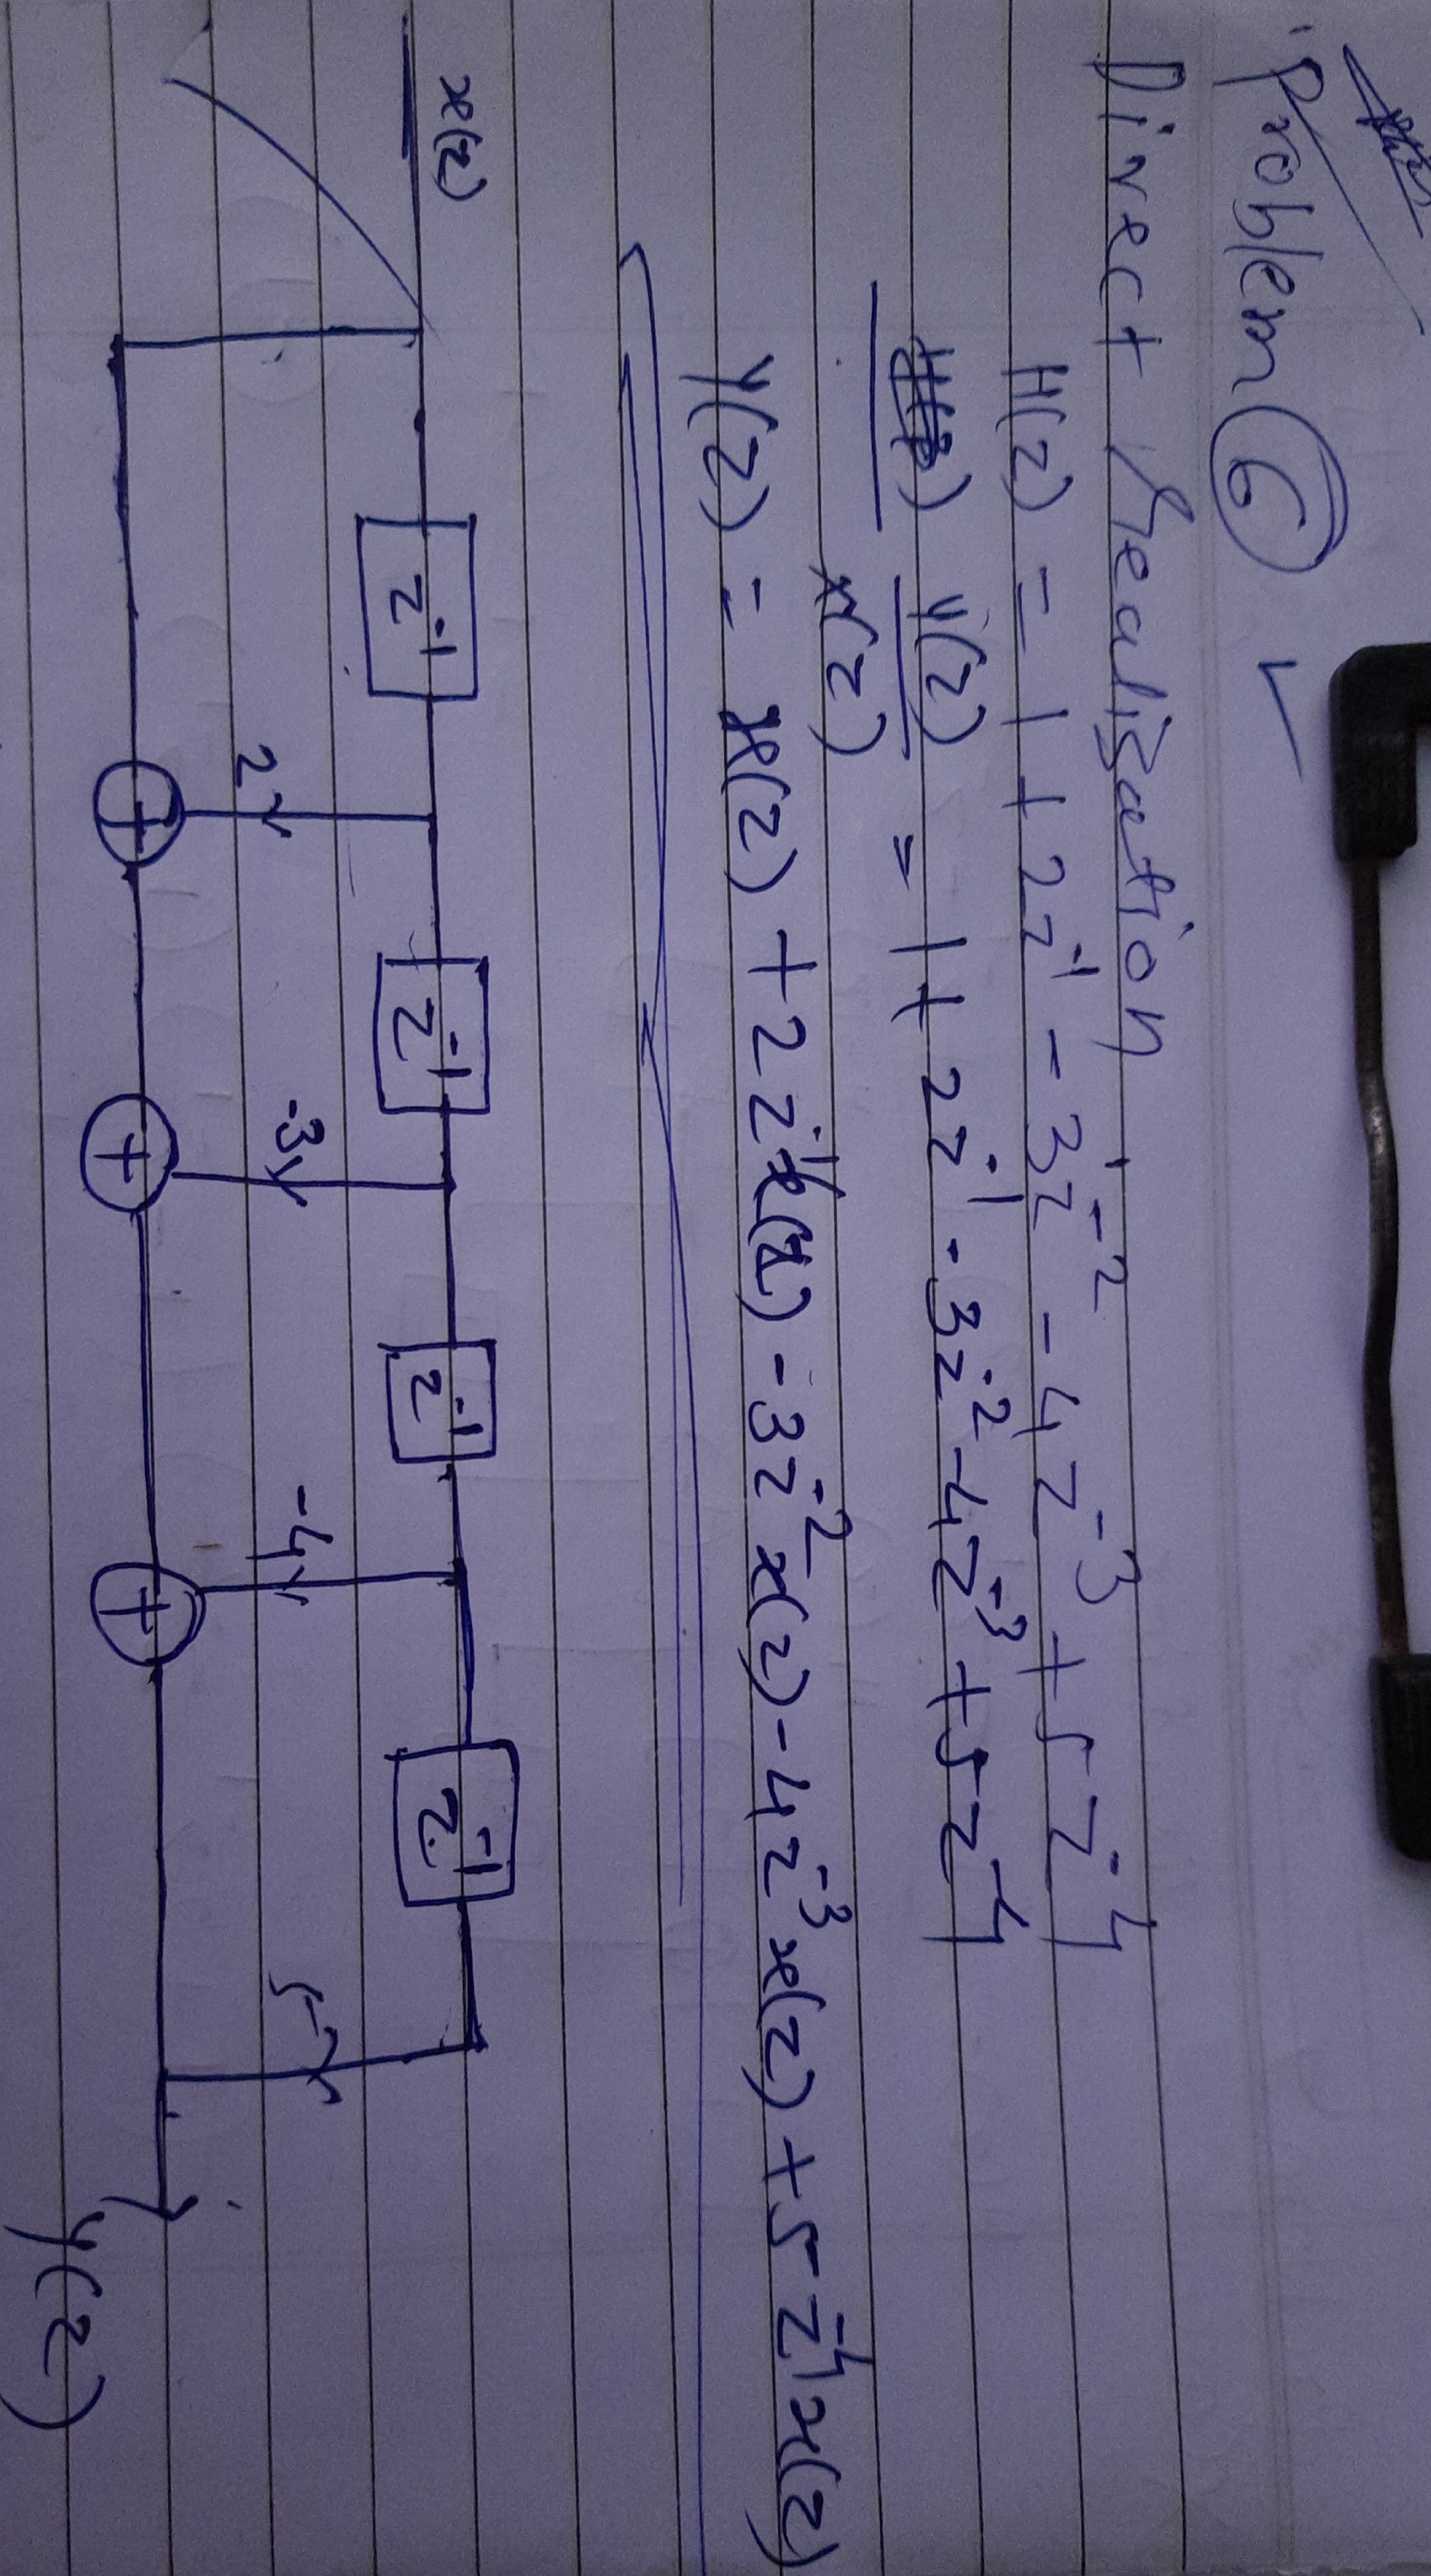 Problem 6 ✓
Direct realization
H(z) = 1 + 2z⁻¹ - 3z⁻² - 4z⁻³ + 5z⁻⁴
Y(z)/X(z) = 1 + 2z⁻¹ - 3z⁻² - 4z⁻³ + 5z⁻⁴
Y(z) = x(z) + 2z⁻¹x(z) - 3z⁻²x(z) - 4z⁻³x(z) + 5z⁻⁴x(z)
x(z) z⁻¹ z⁻¹ z⁻¹ z⁻¹
2 -3 -4 5
+ + +
Y(z)